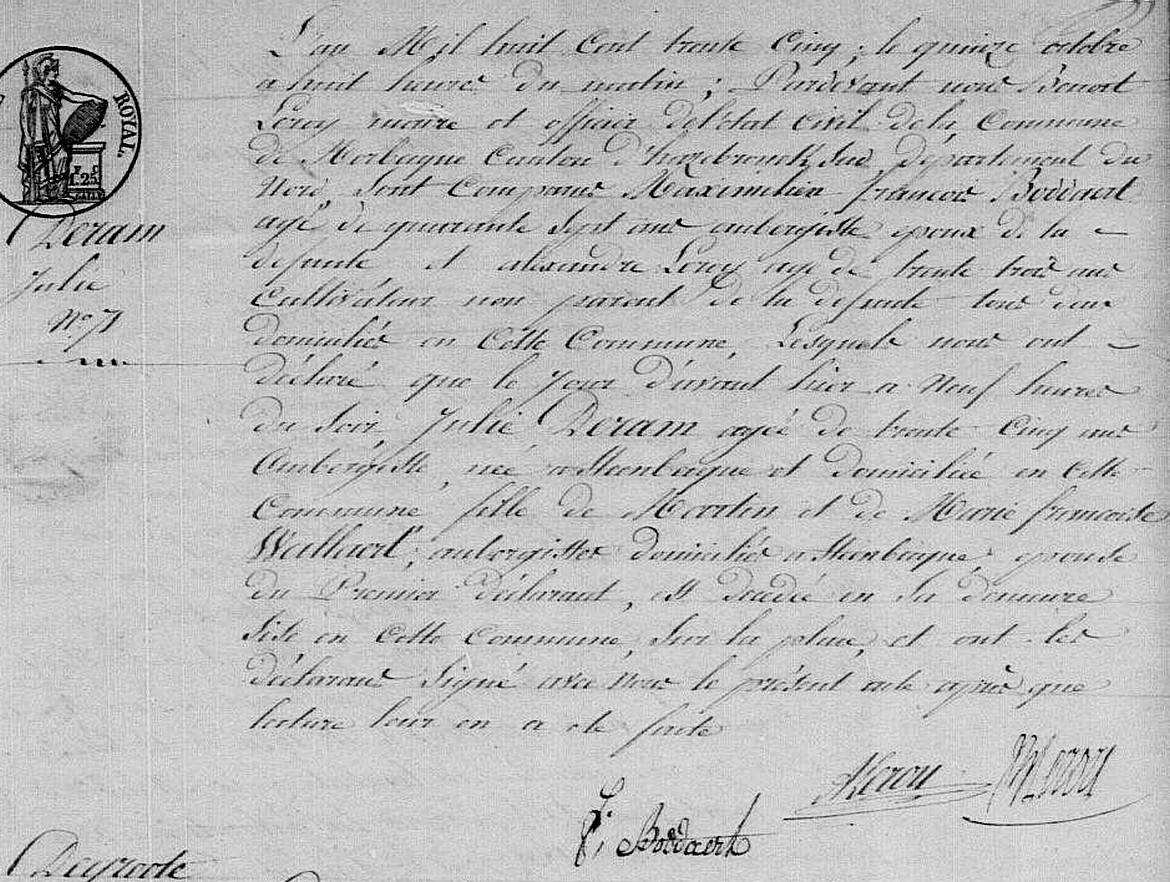 ROYAL.
1.25
Deram
Julie
N° 71
L'an Mil huit Cent trente Cinq, le quinze octobre
a huit heures du matin ; Pardevant nous Benoit
Leroy maire et officier del'état Civil dela Commune
de Morbeque Canton d'hazebrouck Sud, Département du
Nord, Sont Comparus Maximilien francois Boddaert
agé de quarante Sept ans aubergiste epoux de la
defunte et alexandre Leroy agé de trente trois ans
Cultivateur non parent de la defunte tous deux
domiciliés en Cette Commune, Lesquels nous ont
déclaré que le Jour d'avant hier a Neuf heures
du Soir, Julie Deram agée de trente Cinq ans
Aubergiste, née a Steenbeque et domiciliée en Cette
Commune fille de Martin et de Marie francoise
Wallaert, aubergistes domiciliés a Steenbeque, epouse
du Premier déclarant, est décédée en Sa demeure
Sise en Cette Commune, Sur la place, et ont les
déclarans Signé avec Nous le présent acte après que
lecture leur en a été faite
ALeroy
Leroy
Boddaert